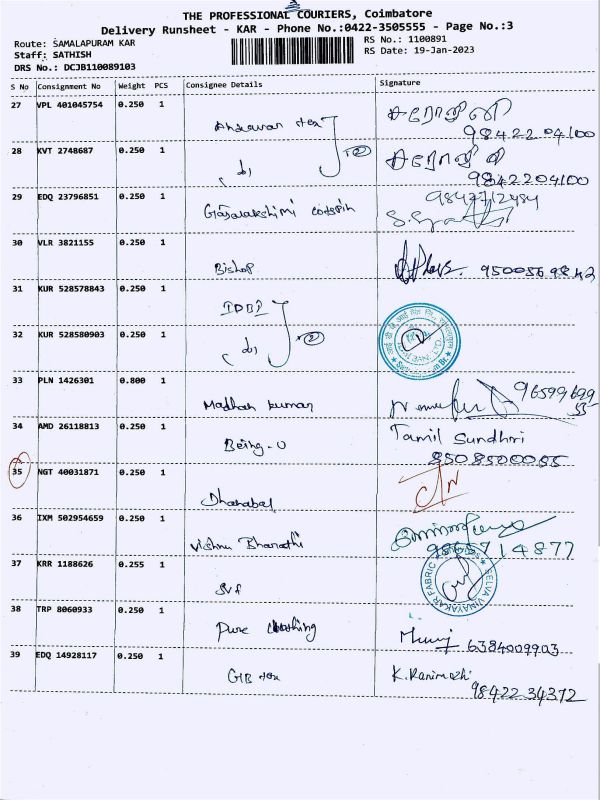 THE PROFESSIONAL COURIERS, Coimbatore
Delivery Runsheet - KAR - Phone No.:0422-3505555 - Page No.:3
Route: SAMALAPURAM KAR
RS No.: 1100891
Staff: SATHISH
RS Date: 19-Jan-2023
DRS No.: DCJB110089103
S No Consignment No Weight PCS Consignee Details Signature
27 VPL 401045754 0.250 1
சரோஜினி
98422 04100
28 KVT 2748687 0.250 1
(2)
do
98422 04100
29 EDQ 23796851 0.250 1
9842712484
30 VLR 3821155 0.250 1
Bishop
9500569842
31 KUR 528578843 0.250 1
IDBI
32 KUR 528580903 0.250 1
(2)
do
33 PLN 1426301 0.800 1
Madhan kumar
96599699
55
34 AMD 26118813 0.250 1
Being-U
Tamil Sundhri
8508500055
35 NGT 40031871 0.250 1
Dhanabal
36 IXM 502954659 0.250 1
Vishnu Bharathi
9865714877
37 KRR 1188626 0.255 1
SVF
SELVA VINAYAKAR FABRIC
38 TRP 8060933 0.250 1
Pure clothing
6384009903
39 EDQ 14928117 0.250 1
GB tex
K. Ranimozhi
98422 34372